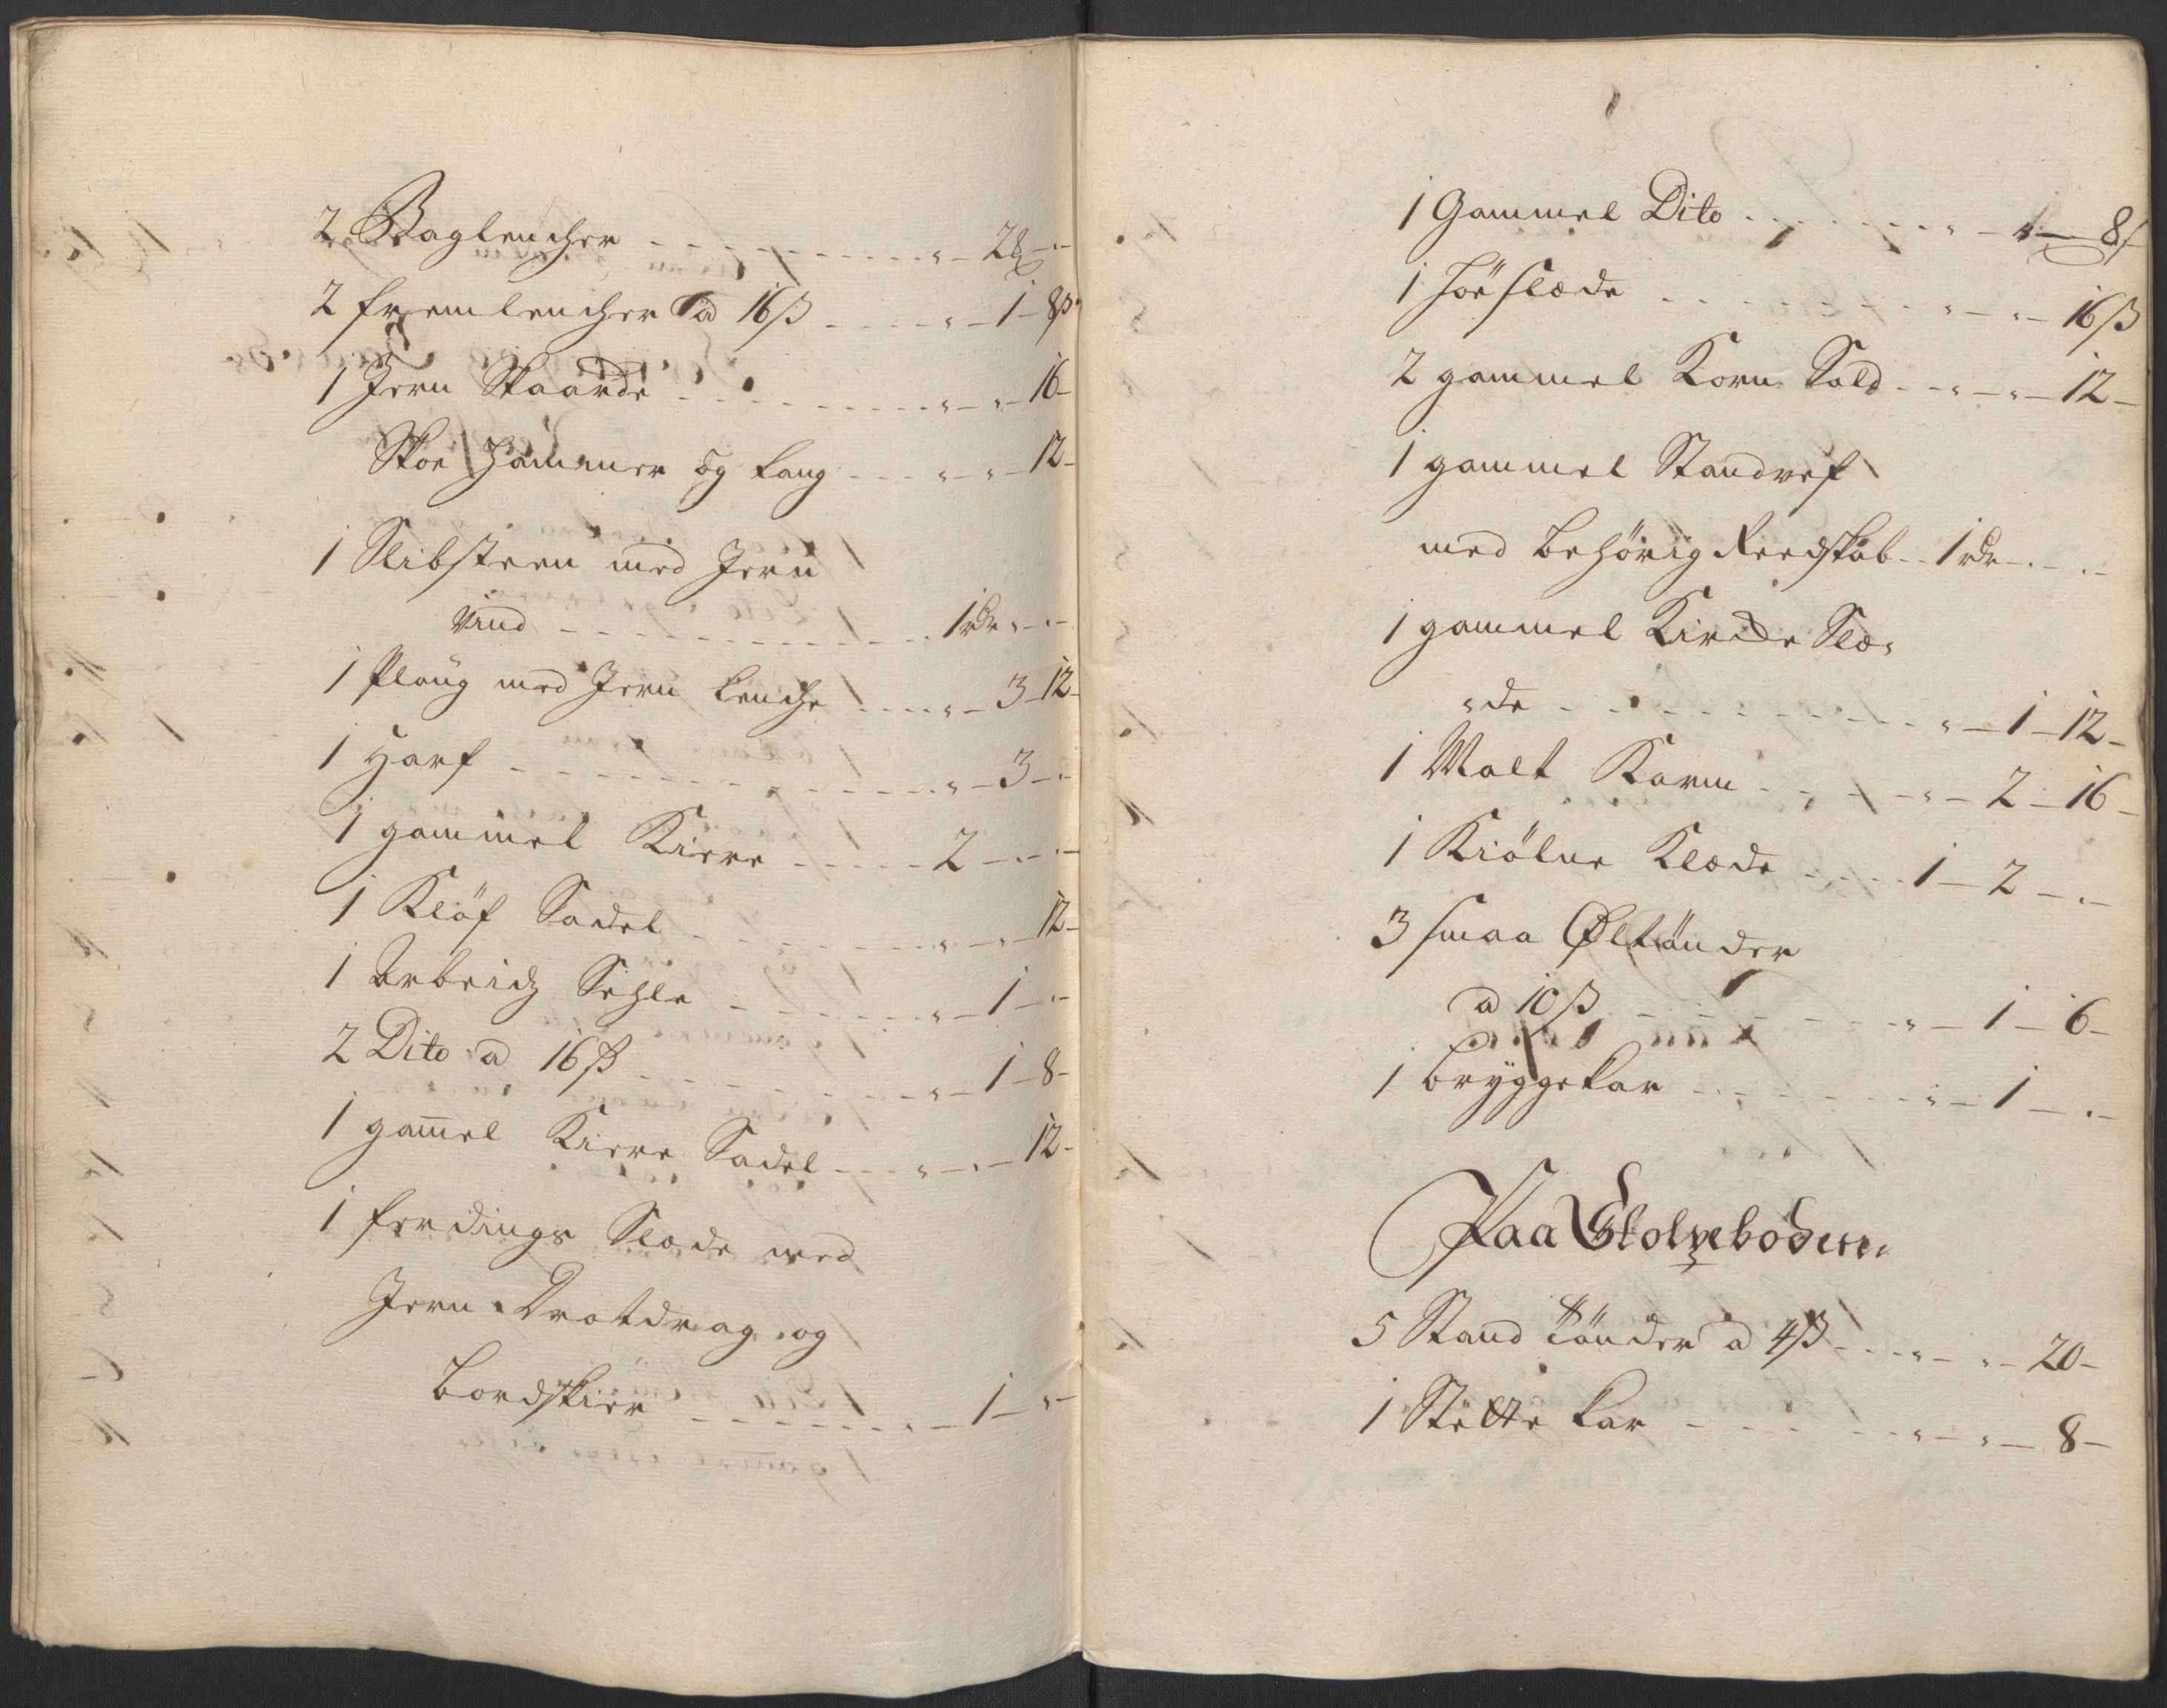 2 Baglencher - - - - - - - - - - " - 2 - "
2 fremlencher a 16 ß - - - - " - 1 - 8 ß
1 Jern Staande - - - - - - - - " - " - 16 -
Skoe Hammer og tang - - - " - " - 12 -
1 Slibsteen med Jern
Vind - - - - - - - - - - 1 rdr " - "
1 Ploug med Jern lenche - - - " - 3 - 12 -
1 Harf - - - - - - - - - - " - 3 - "
1 gammel Kierre - - - - 2 - " - "
1 Kløf Sadel - - - - - - - " - " - 12 -
1 Arbeidz Sehle - - - - - - " - 1 - "
2 Dito a 16 ß - - - - - - - " - 1 - 8 -
1 gam̄el Kierre Sadel - - - " - " - 12 -
1 ferdings Slæde med
Jern Dratdrag og
bordskier - - - - - - " - 1 - "
1 Gammel Dito - - - - - - " - " - 8 ß
1 Høeslæde - - - - - - - " - " - 16 ß
2 gammel Korn Sold - - " - " - 12 -
1 gammel Standvef
med behørig Reedskab - - 1 rdr - " - "
1 gammel Kircke Slæ-
-de - - - - - - - - - - " - 1 - 12 -
1 Malt Karm - - - - - " - 2 - 16 -
1 Kiølne Klæde - - - - 1 - 2 - "
3 smaa Øltønder
a 10 ß - - - - - - - - " - 1 - 6 -
1 bryggekar - - - - - - - " - 1 - "
Paa Stolpeboden
5 Stand tønder a 4 ß - - - " - " - 20 -
1 Støtte kar - - - - - - " - " - 8 -